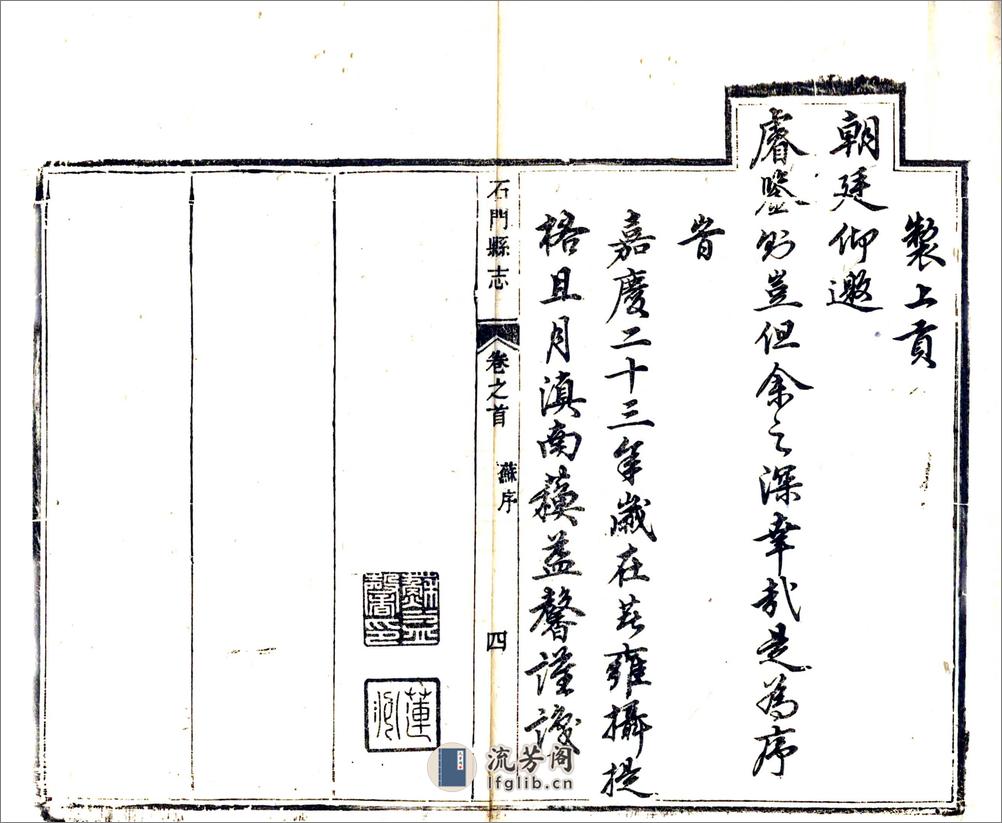 製上貢
朝廷仰邀
睿鑒則豈但余之深幸哉是為序
旹
嘉慶二十三年歲在著雍攝提
格且月滇南蘇益馨謹識
蘇益馨印
蓮
石門縣志 卷之首 蘇序 四
流芳阁
lfglib.cn